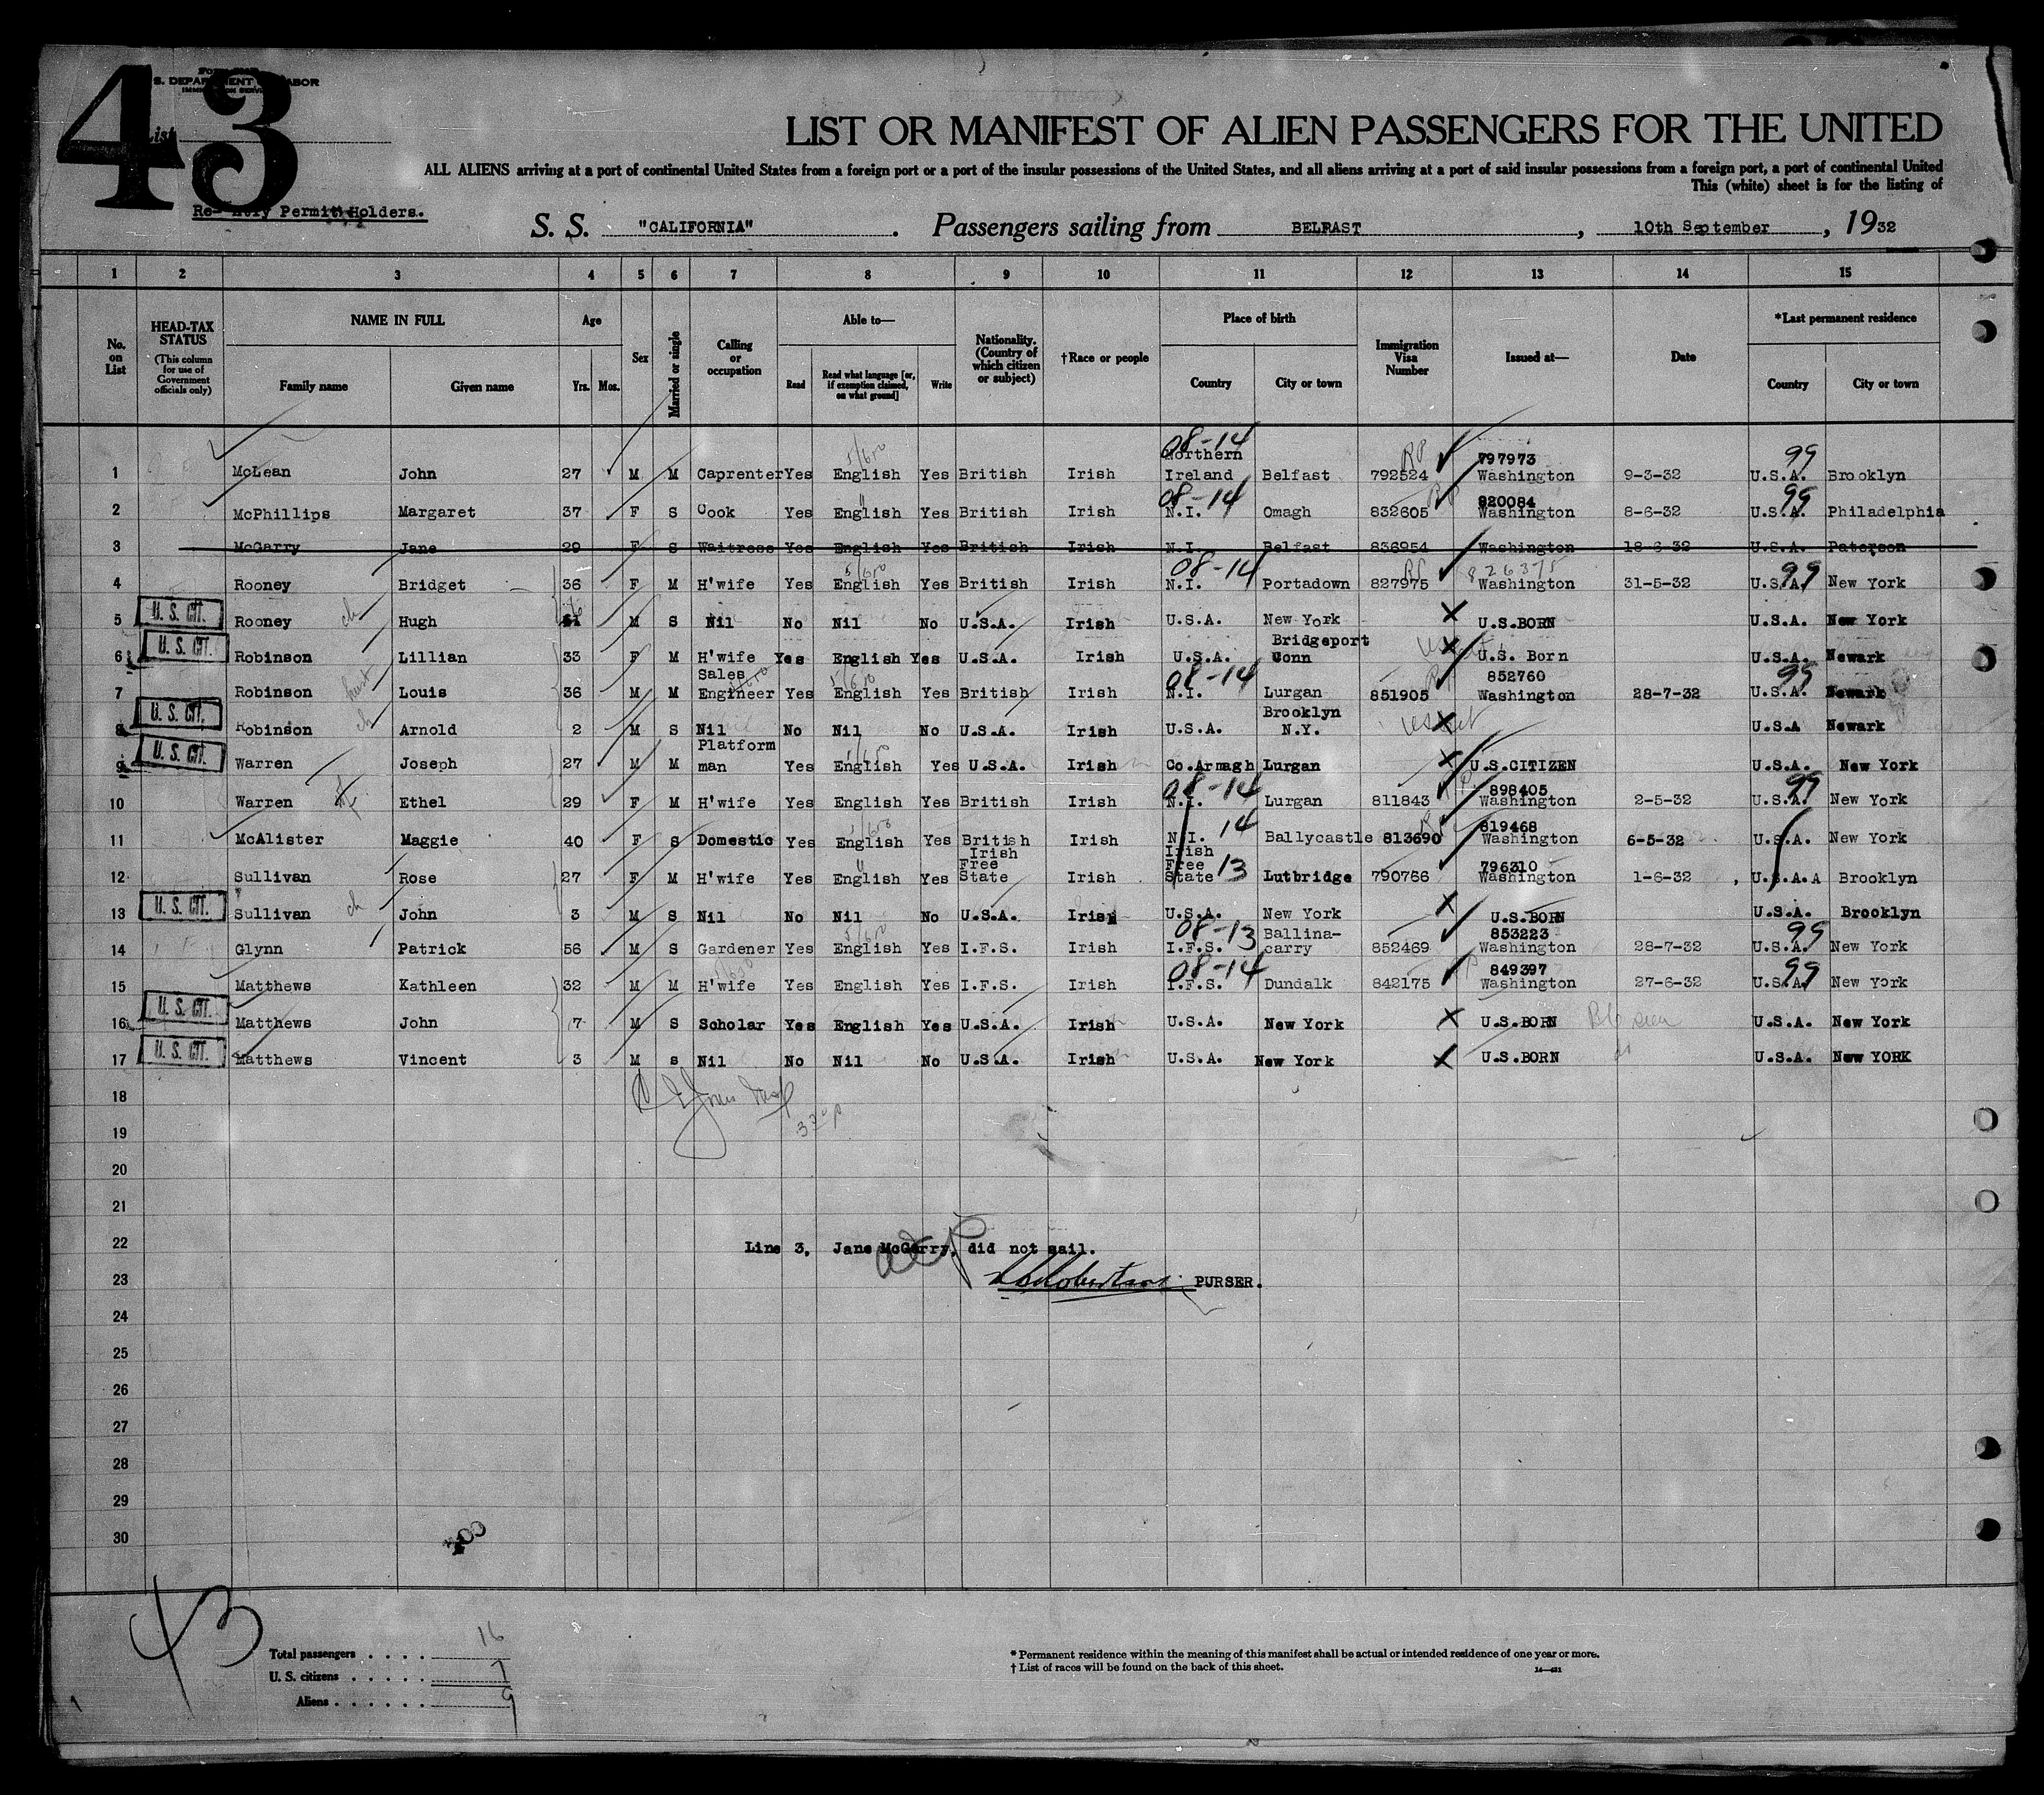 43
S. DEPARTMENT OF LABOR
List
LIST OR MANIFEST OF ALIEN PASSENGERS FOR THE UNITED
ALL ALIENS arriving at a port of continental United States from a foreign port or a port of the insular possessions of the United States, and all aliens arriving at a port of said insular possessions from a foreign port, a port of continental United
This (white) sheet is for the listing of
Re- ntry Permit Holders.
S. S. "CALIFORNIA". Passengers sailing from BELFAST, 10th September, 1932
1 2 3 4 5 6 7 8 9 10 11 12 13 14 15
No. on List
HEAD-TAX STATUS (This column for use of Government officials only)
NAME IN FULL Family name Given name
Age Yrs. Mos.
Sex
Married or single
Calling or occupation
Able to— Read Read what language [or, if exemption claimed, on what ground] Write
Nationality. (Country of which citizen or subject)
†Race or people
Place of birth Country City or town
Immigration Visa Number
Issued at—
Date
*Last permanent residence Country City or town
1 McLean John 27 M M Caprenter Yes English Yes British Irish 08-14 Northern Ireland Belfast 792524 797973 Washington 9-3-32 99 U.S.A. Brooklyn
2 McPhillips Margaret 37 F S Cook Yes English Yes British Irish 08-14 N.I. Omagh 832605 820084 Washington 8-6-32 99 U.S.A. Philadelphia
3 McGarry Jane 29 F S Waitress Yes English Yes British Irish N.I. Belfast 836954 Washington 18-6-32 U.S.A. Paterson
4 Rooney Bridget 36 F M H'wife Yes English Yes British Irish 08-14 N.I. Portadown 827975 826375 Washington 31-5-32 99 U.S.A. New York
5 U. S. CIT. Rooney ch Hugh M S Nil No Nil No U.S.A. Irish U.S.A. New York X U.S.BORN U.S.A. New York
6 U. S. CIT. Robinson Lillian 33 F M H'wife Yes English Yes U.S.A. Irish U.S.A. Bridgeport Conn X U.S. Born U.S.A. Newark
7 Robinson Louis 36 M M Sales Engineer Yes English Yes British Irish 08-14 N.I. Lurgan 851905 852760 Washington 28-7-32 99 U.S.A. Newark
8 U. S. CIT. Robinson ch Arnold 2 M S Nil No Nil No U.S.A. Irish U.S.A. Brooklyn N.Y. X U.S.A Newark
9 U. S. CIT. Warren Joseph 27 M M Platform man Yes English Yes U.S.A. Irish Co.Armagh Lurgan X U.S.CITIZEN U.S.A. New York
10 Warren Ethel 29 F M H'wife Yes English Yes British Irish 08-14 N.I. Lurgan 811843 898405 Washington 2-5-32 99 U.S.A. New York
11 McAlister Maggie 40 F S Domestic Yes English Yes British Irish N.I. 14 Ballycastle 813690 819468 Washington 6-5-32 U.S.A. New York
12 Sullivan Rose 27 F M H'wife Yes English Yes Irish Free State Irish Irish Free State 13 Lutbridge 790766 796310 Washington 1-6-32 , U.S.A.A Brooklyn
13 U. S. CIT. Sullivan ch John 3 M S Nil No Nil No U.S.A. Irish U.S.A. New York X U.S.BORN U.S.A. Brooklyn
14 Glynn Patrick 56 M S Gardener Yes English Yes I.F.S. Irish 08-13 I.F.S. Ballina-carry 852469 853223 Washington 28-7-32 99 U.S.A. New York
15 Matthews Kathleen 32 M M H'wife Yes English Yes I.F.S. Irish 08-14 I.F.S. Dundalk 842175 849397 Washington 27-6-32 99 U.S.A. New York
16 U. S. CIT. Matthews John 7 M S Scholar Yes English Yes U.S.A. Irish U.S.A. New York X U.S.BORN U.S.A. New York
17 U. S. CIT. Matthews Vincent 3 M S Nil No Nil No U.S.A. Irish U.S.A. New York X U.S.BORN U.S.A. New YORK
18
19
20
21
22 Line 3, Jane McGarry, did not sail.
23 PURSER.
24
25
26
27
28
29
30
43
Total passengers . . . . 16
U. S. citizens . . . . . 7
Aliens . . . . . . 9
* Permanent residence within the meaning of this manifest shall be actual or intended residence of one year or more.
† List of races will be found on the back of this sheet.